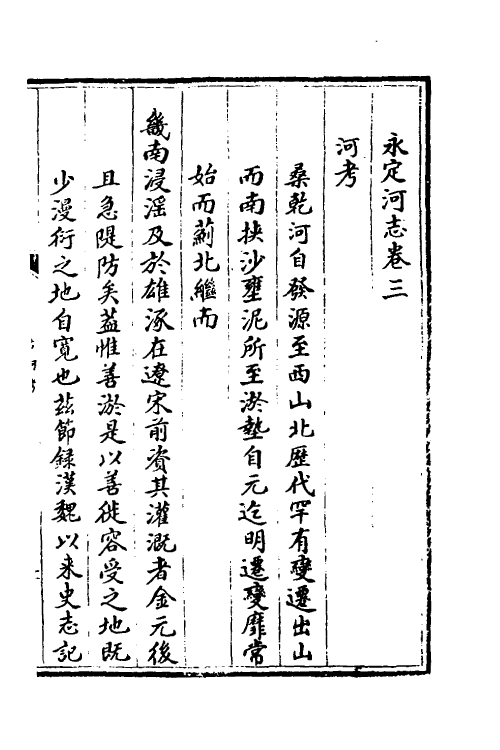 永定河志卷三
河考
桑乾河自發源至西山北歷代罕有變遷出山
而南挾沙壅泥所至淤墊自元迄明遷變靡常
始而薊北繼而
畿南浸淫及於雄涿在遼宋前資其灌溉者金元後
且急隄防矣蓋惟善淤是以善徙容受之地既
少漫衍之地自寬也茲節録漢魏以来史志記